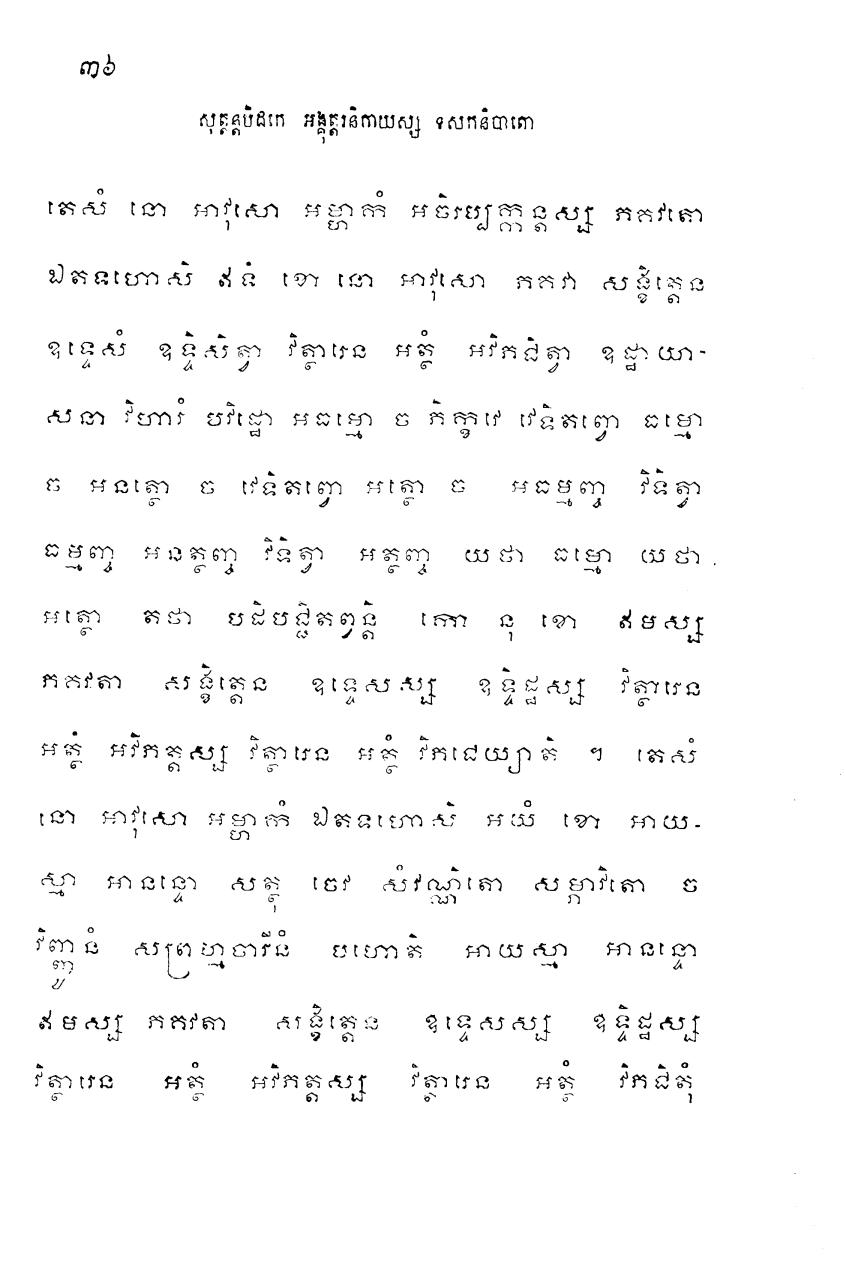 ៣៦
សុត្តន្តបិដកេ អង្គុត្តរនិកាយស្ស ទសកនិបាតោ
តេសំ នោ អាវុសោ អម្ហាកំ អចិរប្បក្កន្តស្ស ភគវតោ
ឯតទហោសិ ឥទំ ខោ នោ អាវុសោ ភគវា សង្ខិត្តេន
ឧទ្ទេសំ ឧទ្ទិសិត្វា វិត្ថារេន អត្ថំ អវិភជិត្វា ឧដ្ឋាយា-
សនា វិហារំ បវិដ្ឋោ អធម្មោ ច ភិក្ខវេ វេទិតព្វោ ធម្មោ
ច អនត្ថោ ច វេទិតព្វោ អត្ថោ ច អធម្មញ្ច វិទិត្វា
ធម្មញ្ច អនត្ថញ្ច វិទិត្វា អត្ថញ្ច យថា ធម្មោ យថា
អត្ថោ តថា បដិបជ្ជិតព្វន្តិ កោ នុ ខោ ឥមស្ស
ភគវតា សង្ខិត្តេន ឧទ្ទេសស្ស ឧទ្ទិដ្ឋស្ស វិត្ថារេន
អត្ថំ អវិភត្តស្ស វិត្ថារេន អត្ថំ វិភជេយ្យាតិ ។ តេសំ
នោ អាវុសោ អម្ហាកំ ឯតទហោសិ អយំ ខោ អាយ-
ស្មា អានន្ទោ សត្ថុ ចេវ សំវណ្ណិតោ សម្ភាវិតោ ច
វិញ្ញូនំ សព្រហ្មចារីនំ បហោតិ អាយស្មា អានន្ទោ
ឥមស្ស ភគវតា សង្ខិត្តេន ឧទ្ទេសស្ស ឧទ្ទិដ្ឋស្ស
វិត្ថារេន អត្ថំ អវិភត្តស្ស វិត្ថារេន អត្ថំ វិភជិតុំ